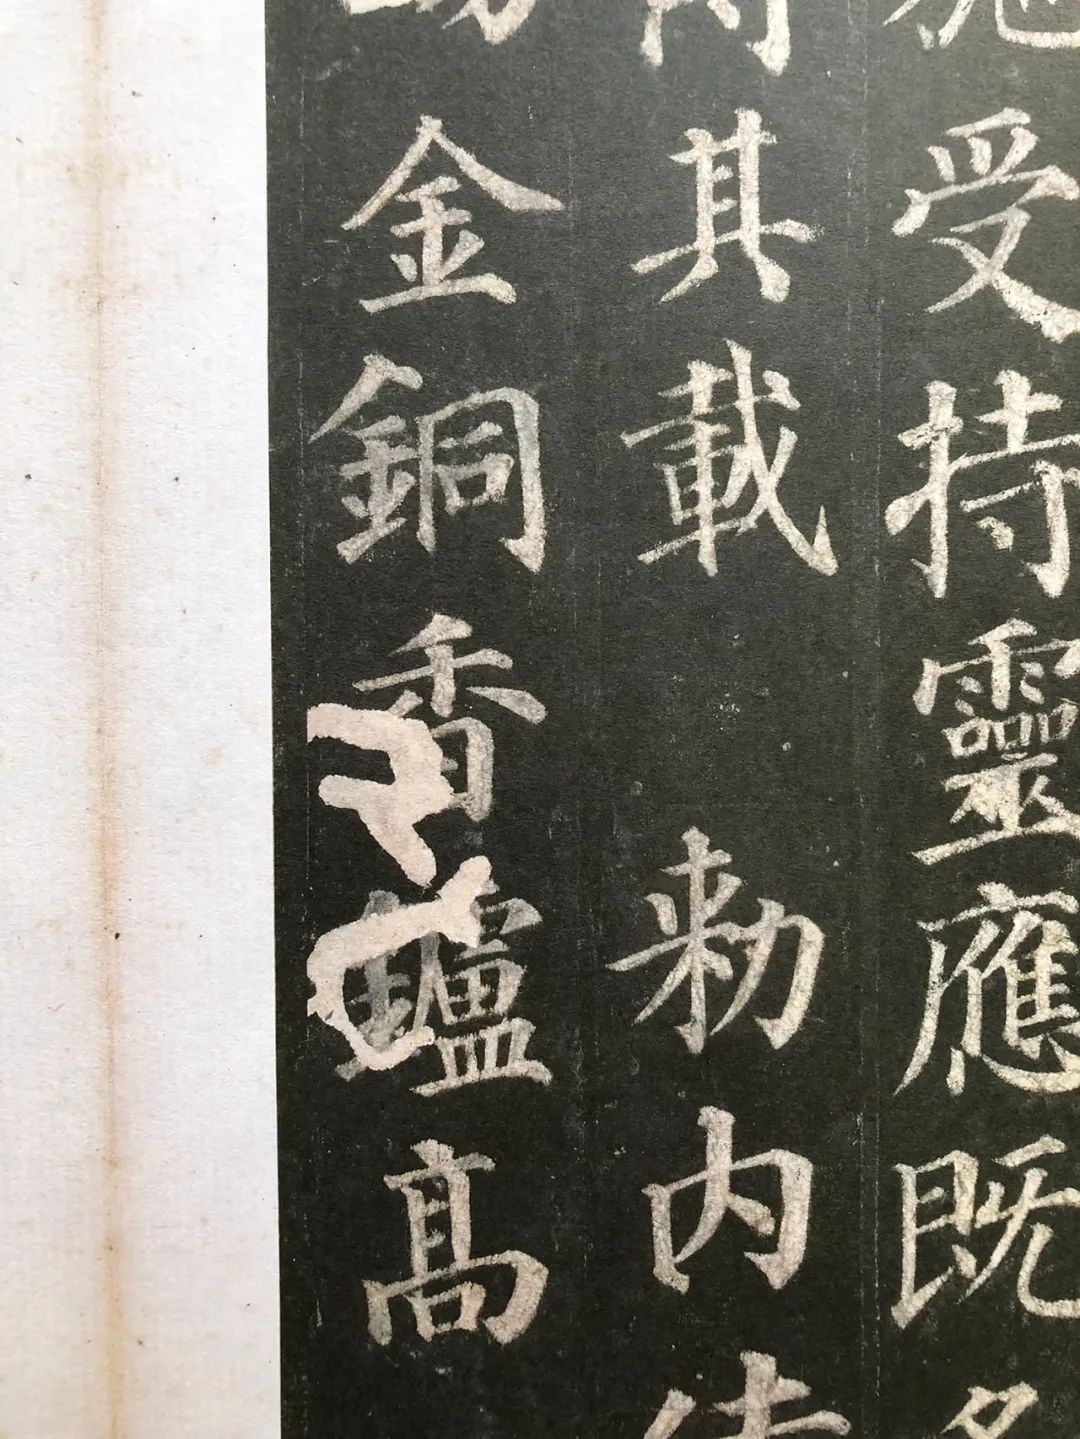 受持靈應既
其載敕内使
金銅香爐高